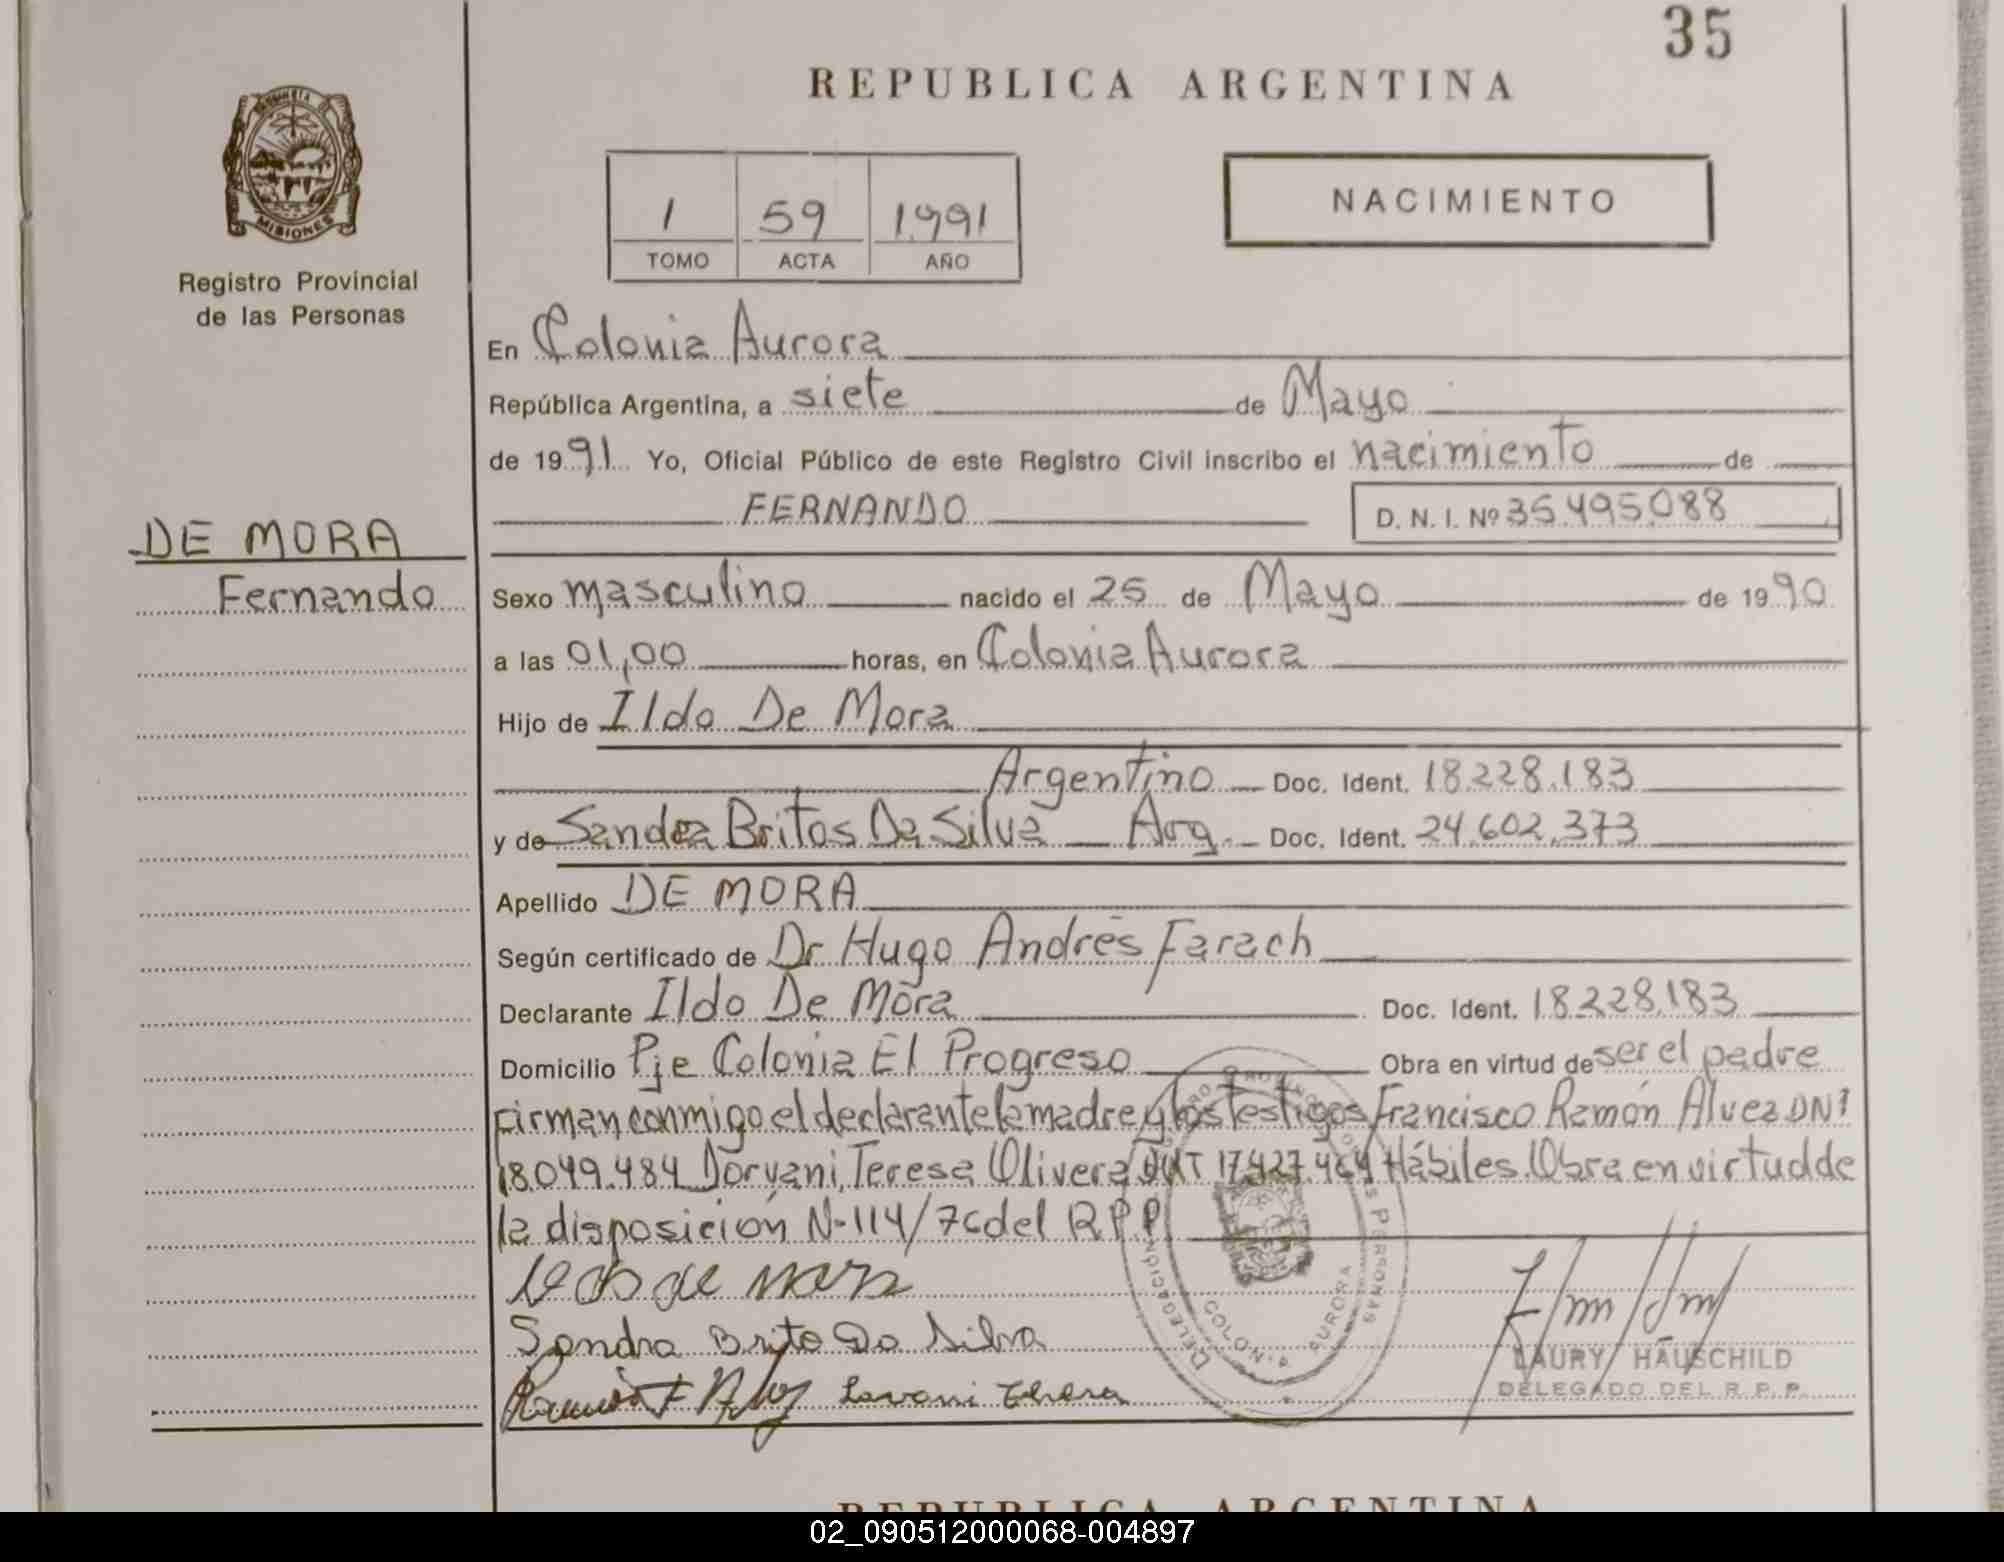 35
REPUBLICA ARGENTINA
PROVINCIA DE
MISIONES
Registro Provincial
de las Personas
1 59 1.991
TOMO ACTA AÑO
NACIMIENTO
En Colonia Aurora
República Argentina, a siete de Mayo
de 1991 Yo, Oficial Público de este Registro Civil inscribo el nacimiento de
FERNANDO D. N. I. Nº 35.495.088
DE MORA
Fernando
Sexo masculino nacido el 25 de Mayo de 1990
a las 01,00 horas, en Colonia Aurora
Hijo de Ildo De Mora
Argentino Doc. Ident. 18.228.183
y de Sandra Britos Da Silva Arg. Doc. Ident. 24.602.373
Apellido DE MORA
Según certificado de Dr Hugo Andrés Farach
Declarante Ildo De Mora Doc. Ident. 18.228.183
Domicilio Pje Colonia El Progreso Obra en virtud de ser el padre
Firman conmigo el declarante la madre y los testigos Francisco Ramón Alvez DNI
18.049.484 Dorvani, Teresa Olivera 17.427.464 Hábiles. Obra en virtud de
la disposición N-114/76 del R.P.P.
de mora
Sandra Brito Da Silva
LAURY HAUSCHILD
DELEGADO DEL R. P. P.
DELEGACIÓN COLONIA AURORA
REPUBLICA ARGENTINA
02_090512000068-004897